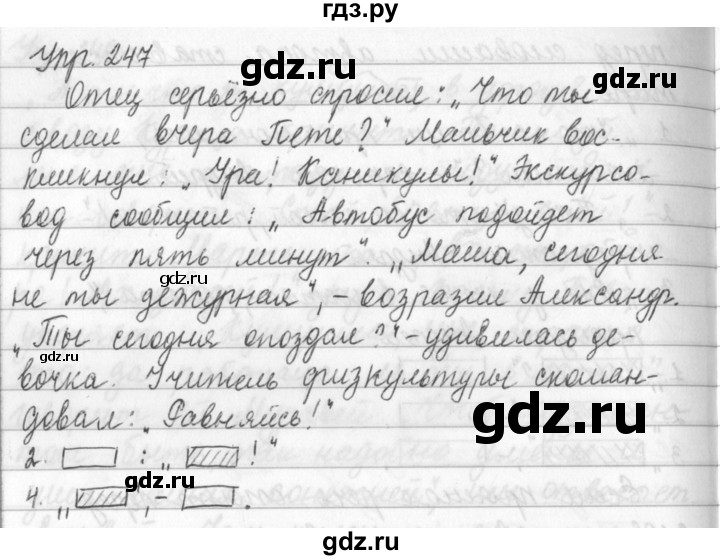 гдз.ру
Упр. 247
Отец серьёзно спросил: „Что ты
сделал вчера Пете?“ Мальчик вос-
кликнул: „Ура! Каникулы!“ Экскурсо-
вод сообщил: „Автобус подойдет
через пять минут“. „Маша, сегодня
не ты дежурная“, – возразил Александр.
„Ты сегодня опоздал?“ – удивилась де-
вочка. Учитель физкультуры скоман-
довал: „Равняйсь!“
2. : „ !“
4. „ “, – .
gdz.ru
gdz.ru
gdz.ru
gdz.ru
gdz.ru
gdz.ru
gdz.ru